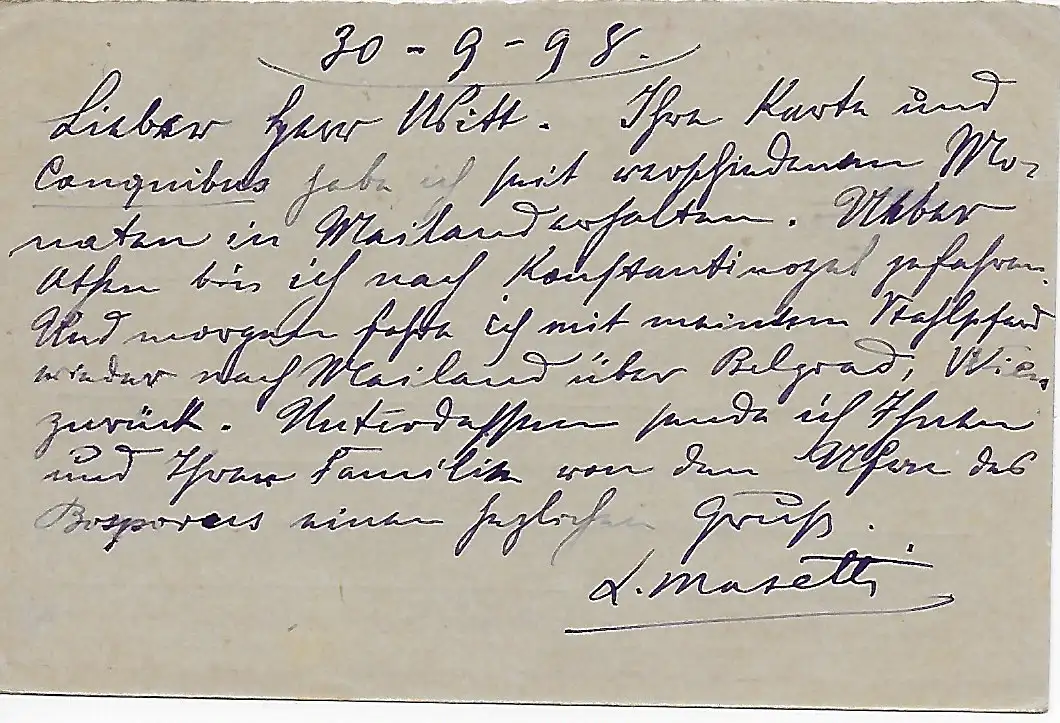 30-9-98.
Lieber Herr Witt. Ihre Karte und
Conquibus habe ich seit verschiedenen Mo-
naten in Mailand erhalten. Ueber
Athen bin ich nach Konstantinopel gefahren.
Und morgen fahre ich mit meinem Stahlpferd
wieder nach Mailand über Belgrad, Wien
zurück. Unterdessen sende ich Ihnen
und Ihrer Familie von den Ufern des
Bosporus einen herzlichen Gruß.
L. Masetti